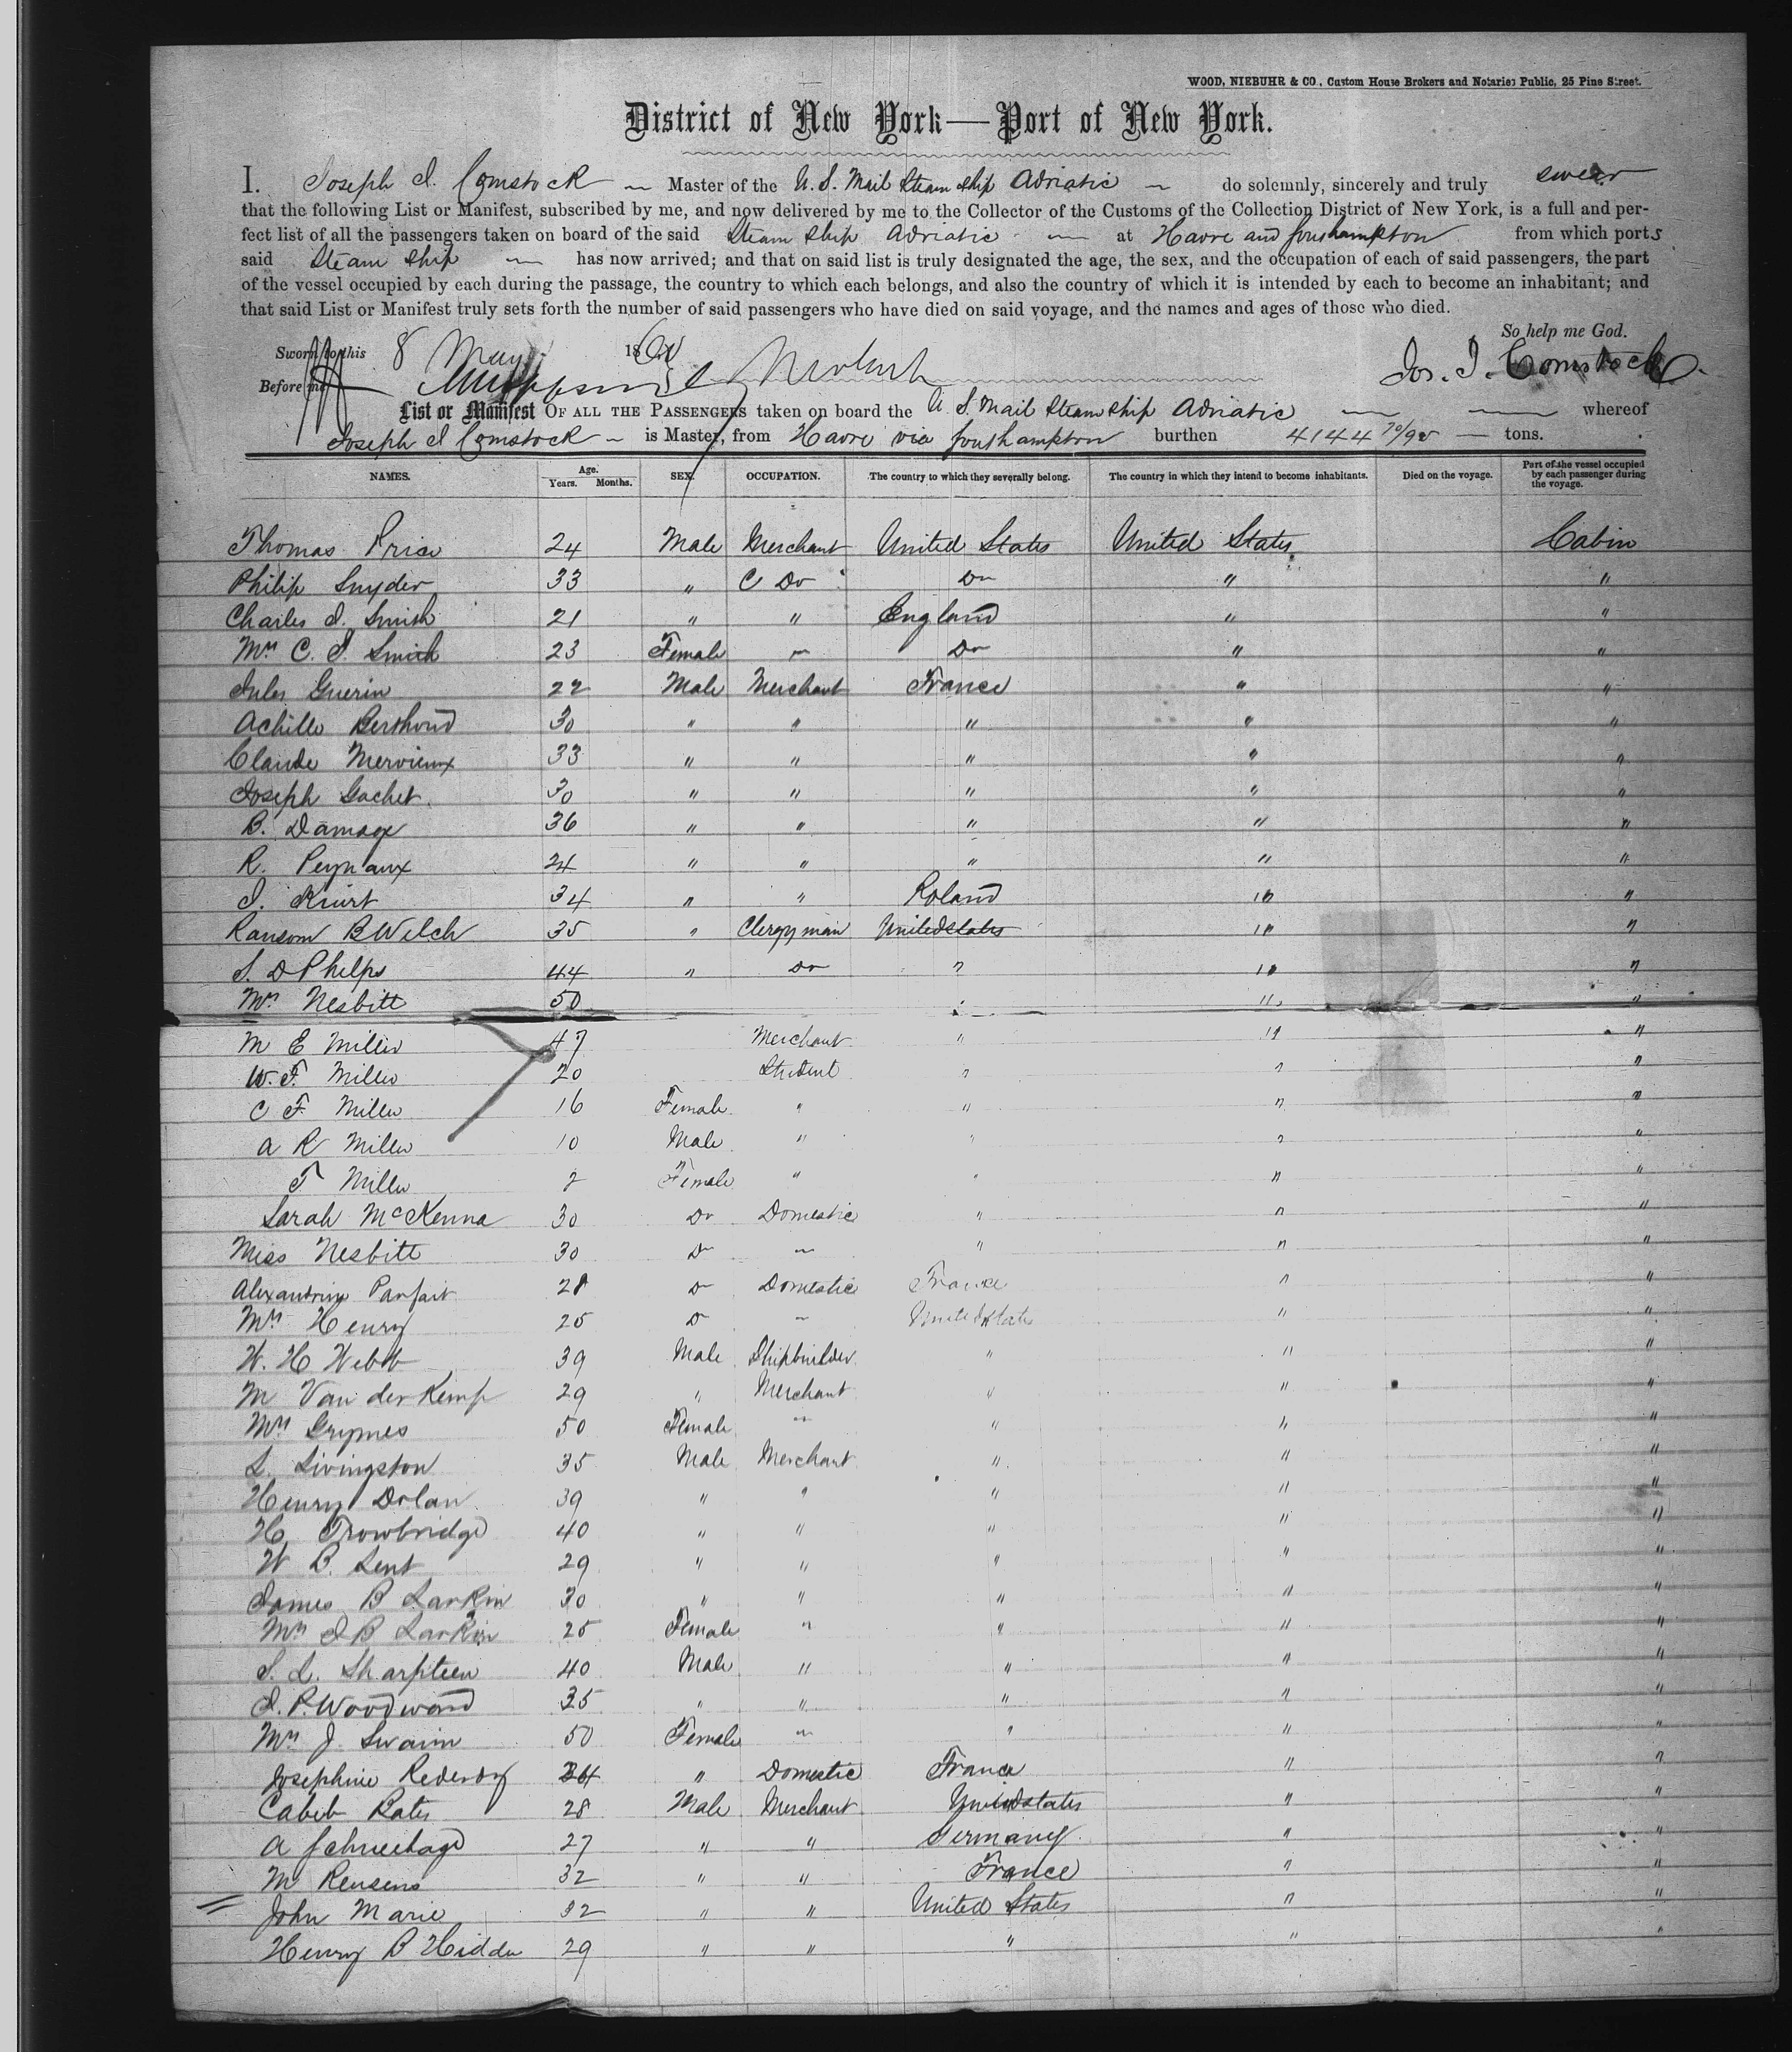 WOOD, NIEBUHR & CO., Custom House Brokers and Notaries Public, 25 Pine Street.
District of New York—Port of New York.
I. Joseph J. Comstock Master of the U. S. Mail Steam Ship Adriatic do solemnly, sincerely and truly swear
that the following List or Manifest, subscribed by me, and now delivered by me to the Collector of the Customs of the Collection District of New York, is a full and per-
fect list of all the passengers taken on board of the said Steam Ship Adriatic at Havre and Southampton from which ports
said Steam Ship has now arrived; and that on said list is truly designated the age, the sex, and the occupation of each of said passengers, the part
of the vessel occupied by each during the passage, the country to which each belongs, and also the country of which it is intended by each to become an inhabitant; and
that said List or Manifest truly sets forth the number of said passengers who have died on said voyage, and the names and ages of those who died.
So help me God.
Sworn to this 8 May 1860
Jos. J. Comstock
Before me
List or Manifest OF ALL THE PASSENGERS taken on board the U. S. Mail Steam Ship Adriatic whereof
Joseph J Comstock is Master, from Havre via Southampton burthen 4144 70/95 tons.
NAMES. Age. Years. Months. SEX. OCCUPATION. The country to which they severally belong. The country in which they intend to become inhabitants. Died on the voyage. Part of the vessel occupied by each passenger during the voyage.
Thomas Price 24 Male Merchant United States United States Cabin
Philip Snyder 33 " Do Do " "
Charles J. Smith 21 " " England " "
Mrs C. J. Smith 23 Female — Do " "
Jules Guerin 22 Male Merchant France " "
Achille Berthoud 30 " " " " "
Claude Mervieux 33 " " " " "
Joseph Gachet 30 " " " " "
B. Damage 36 " " " " "
R. Peynaux 24 " " " " "
J. 34 " " Poland " "
Ransom B Welch 35 " Clergyman United States " "
S. D Phelps 44 " Do " " "
Mrs Nesbitt 50 " " "
M E Miller 47 Merchant " " "
W. F. Miller 20 Student " " "
C F Miller 16 Female " " " "
A R Miller 10 Male " " " "
F Miller 2 Female " " " "
Sarah McKenna 30 Do Domestic " " "
Miss Nesbitt 30 Do — " " "
Alexandrine Parfait 28 Do Domestic France " "
Mrs Henry 25 Do — United States " "
W. H Webb 39 Male Shipbuilder " " "
M Van der Kemp 29 " Merchant " " "
Mrs Grymes 50 Female — " " "
L. Livingston 35 Male Merchant " " "
Henry Dolan 39 " " " " "
H. Trowbridge 40 " " " " "
W B. Lent 29 " " " " "
James B Larkin 30 " " " " "
Mrs J B Larkin 25 Female " " " "
S. L. Sharpteen 40 Male " " " "
J. P. Woodward 35 " " " " "
Mrs J. Swaim 50 Female — " " "
Josephine 24 " Domestic France " "
Caleb Bates 28 Male Merchant United States " "
A 27 " " Germany " "
M Reusens 32 " " France " "
John Marie 32 " " United States " "
Henry B Hidden 29 " " " " "